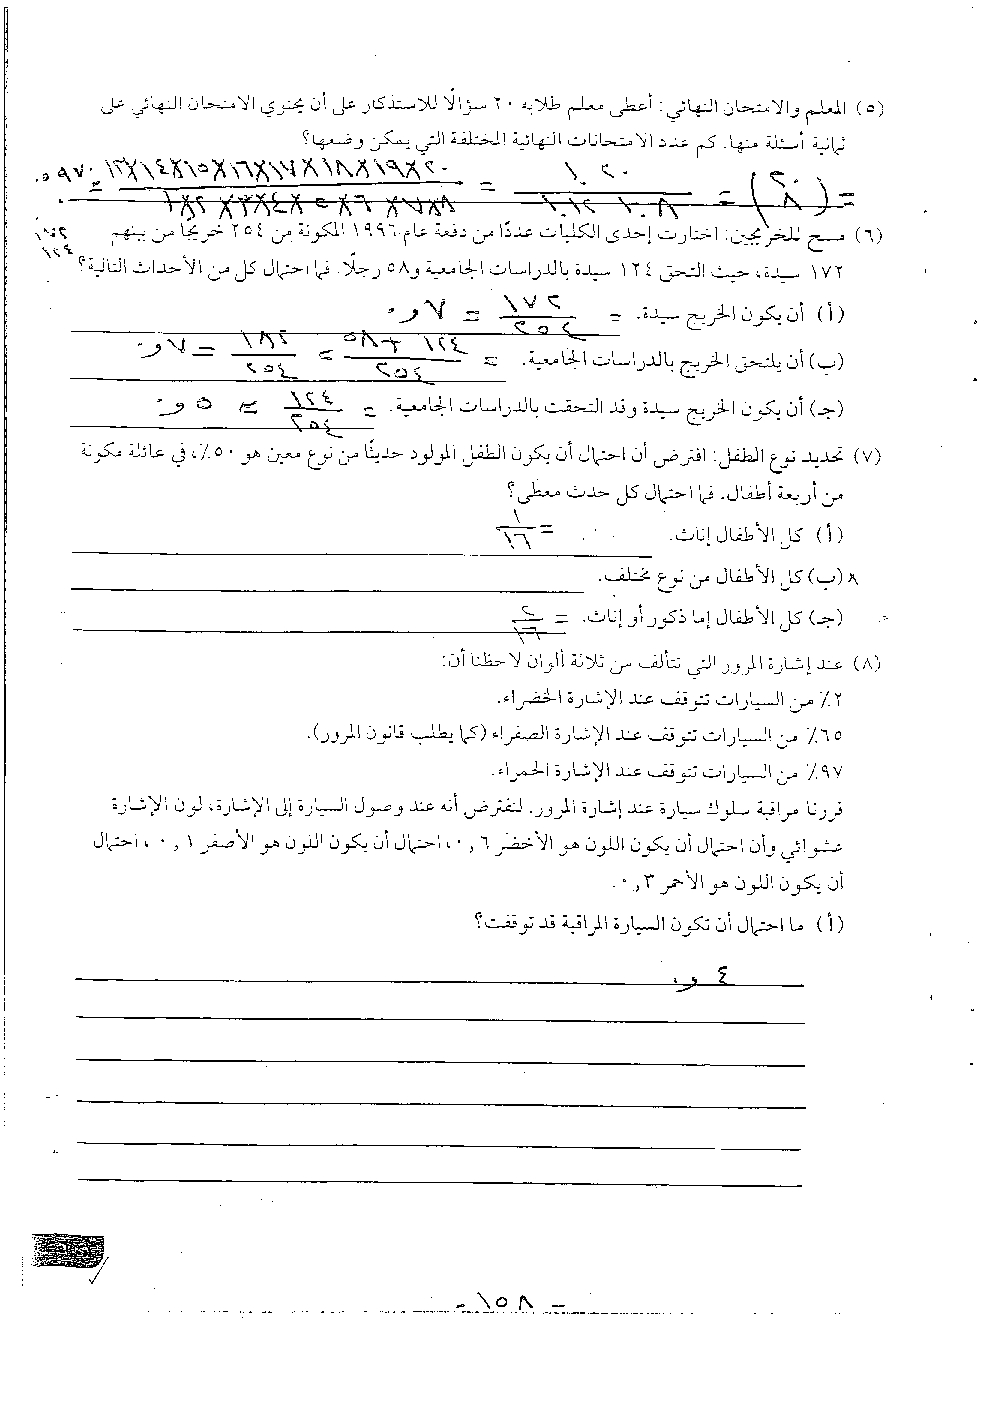 (٥) المعلم والامتحان النهائي: أعطى معلم طلابه ٢٠ سؤالًا للاستذكار على أن يحتوي الامتحان النهائي على
ثمانية أسئلة منها. كم عدد الامتحانات النهائية المختلفة التي يمكن وضعها؟
(٦) مسح للخريجين: اختارت إحدى الكليات عددًا من دفعة عام ١٩٩٦ المكونة من ٢٥٤ خريجًا من بينهم
١٧٢
١٢٤
١٧٢ سيدة، حيث التحق ١٢٤ سيدة بالدراسات الجامعية و٥٨ رجلًا. فما احتمال كل من الأحداث التالية؟
(أ) أن يكون الخريج سيدة. = ١٧٢/٢٥٤ = ٧و٠
(ب) أن يلتحق الخريج بالدراسات الجامعية. = ١٢٤ + ٥٨/٢٥٤ = ١٨٢/٢٥٤ = ٧و٠
(جـ) أن يكون الخريج سيدة وقد التحقت بالدراسات الجامعية. = ١٢٤/٢٥٤ = ٥و٠
(٧) تحديد نوع الطفل: افترض أن احتمال أن يكون الطفل المولود حديثًا من نوع معين هو ٥٠٪، في عائلة مكونة
من أربعة أطفال. فما احتمال كل حدث معطى؟
(أ) كل الأطفال إناث. = ١/١٦
(ب) كل الأطفال من نوع مختلف.
(جـ) كل الأطفال إما ذكور أو إناث. = ٢/١٦
(٨) عند إشارة المرور التي تتألف من ثلاثة ألوان لاحظنا أن:
٢٪ من السيارات تتوقف عند الإشارة الخضراء.
٦٥٪ من السيارات تتوقف عند الإشارة الصفراء (كما يطلب قانون المرور).
٩٧٪ من السيارات تتوقف عند الإشارة الحمراء.
قررنا مراقبة سلوك سيارة عند إشارة المرور. لنفترض أنه عند وصول السيارة إلى الإشارة، لون الإشارة
عشوائي وأن احتمال أن يكون اللون هو الأخضر ٠,٦، احتمال أن يكون اللون هو الأصفر ٠,١، احتمال
أن يكون اللون هو الأحمر ٠,٣.
(أ) ما احتمال أن تكون السيارة المراقبة قد توقفت؟
٤و٠
- ١٥٨ -